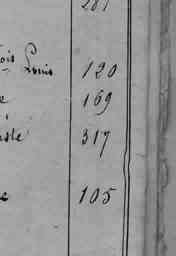 ois
Louis 120
e 169
usle 317
e 105